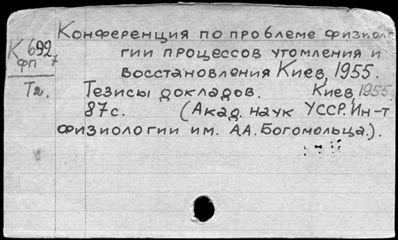 Конференция по проблеме физиоло-
К 692 гии процессов утомления и
фп 7 восстановления Киев, 1955.
Т2. Тезисы докладов. Киев 1955
87с. (Акад. наук УССР. Ин-т
физиологии им. А.А.Богомольца.).